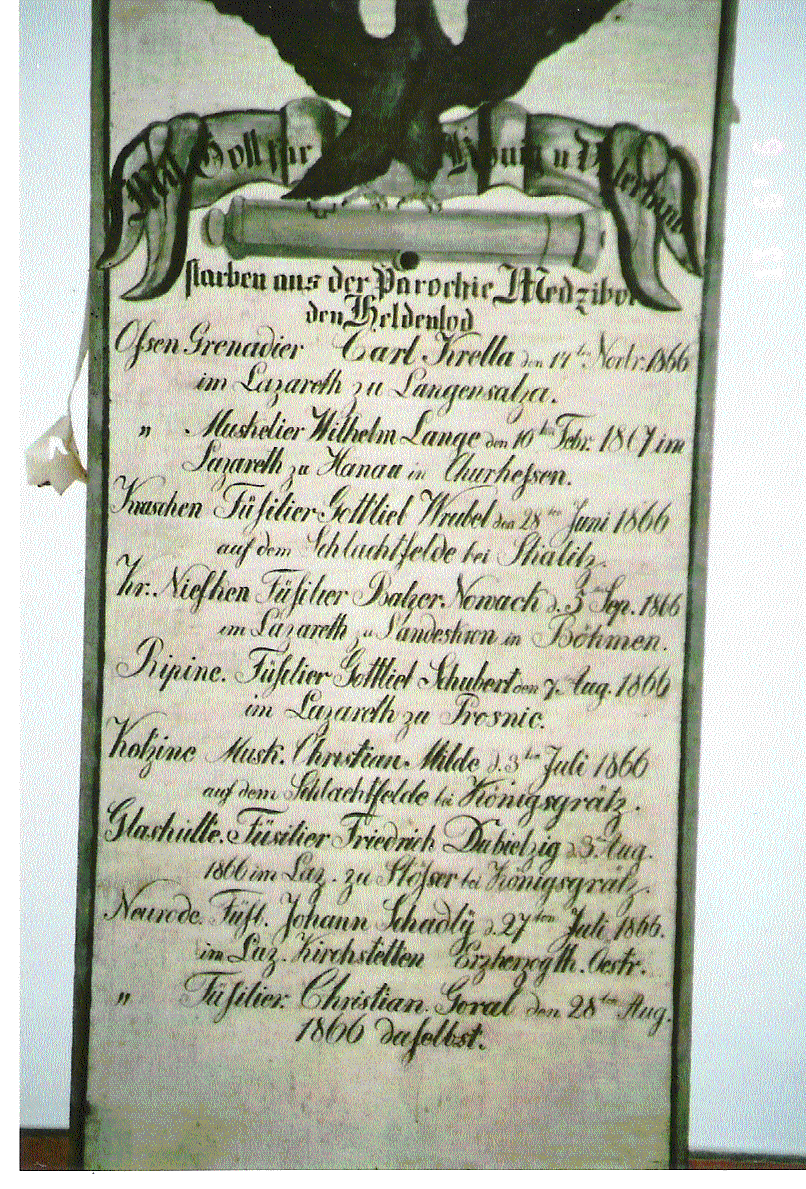 Mit Gott für König u Vaterland
starben aus der Parochie Medzibor
den Heldentod
Ossen Grenadier Carl Krella den 17ten Novbr. 1866
im Lazareth zu Langensalza.
" Musketier Wilhelm Lange den 10ten Febr. 1867 im
Lazareth zu Hanau in Churhessen.
Kraschen Füsilier Gottlieb Wrubel den 28ten Juni 1866
auf dem Schlachtfelde bei Skalitz.
Kr. Niefken Füsilier Balzer Nowack d. 3ten Sep. 1866
im Lazareth zu Landeskron in Böhmen.
Ripine. Füsilier Gottlieb Schubert den 7. Aug. 1866
im Lazareth zu Prosnic.
Kotzine Musk. Christian Milde d. 3ten Juli 1866
auf dem Schlachtfelde bei Königsgrätz.
Glashütte. Füsilier Friedrich Dubielzig d. 3. Aug.
1866 im Laz. zu Stösser bei Königsgrätz.
Neurode. Füsl. Johann Schadÿ d. 27ten Juli 1866.
im Laz. Kirchstetten Erzherzogth. Oestr.
" Füsilier. Christian Goral den 28ten Aug.
1866 daselbst.